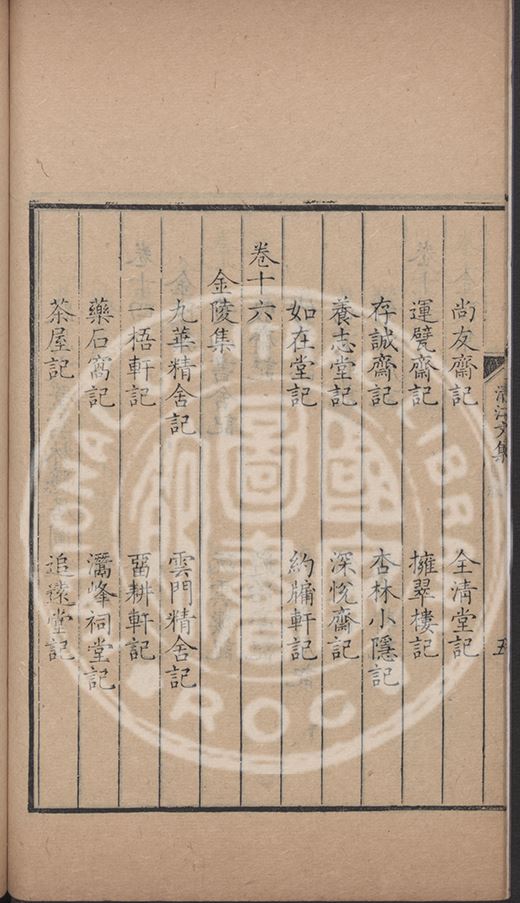 清江文集
五
尚友齋記　全清堂記
運甓齋記　擁翠樓記
存誠齋記　杏林小隱記
養志堂記　深悅齋記
如在堂記　約牖軒記
卷十六
金陵集
九華精舍記　雲門精舍記
一梧軒記　畱耕軒記
藥石窩記　峰祠堂記
茶屋記　追遠堂記